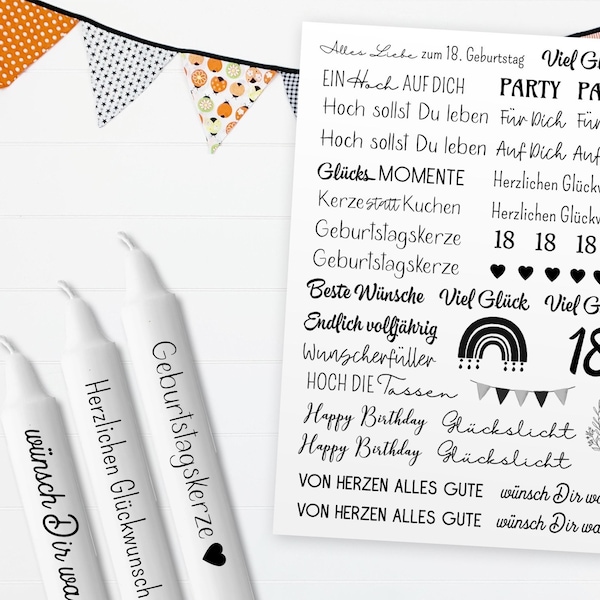 Alles Liebe zum 18. Geburtstag Viel Glü
EIN Hoch AUF DICH PARTY PA
Hoch sollst Du leben Für Dich Für
Hoch sollst Du leben Auf Dich Auf
Glücks MOMENTE Herzlichen Glückw
Kerze statt Kuchen Herzlichen Glückw
Geburtstagskerze 18 18 18
Geburtstagskerze
Beste Wünsche Viel Glück Viel G
Endlich volljährig 18
Wunscherfüller
HOCH DIE Tassen
Happy Birthday Glückslicht
Happy Birthday Glückslicht
VON HERZEN ALLES GUTE wünsch Dir wa
VON HERZEN ALLES GUTE wünsch Dir wa
wünsch Dir wa
Herzlichen Glückwunsch
Geburtstagskerze